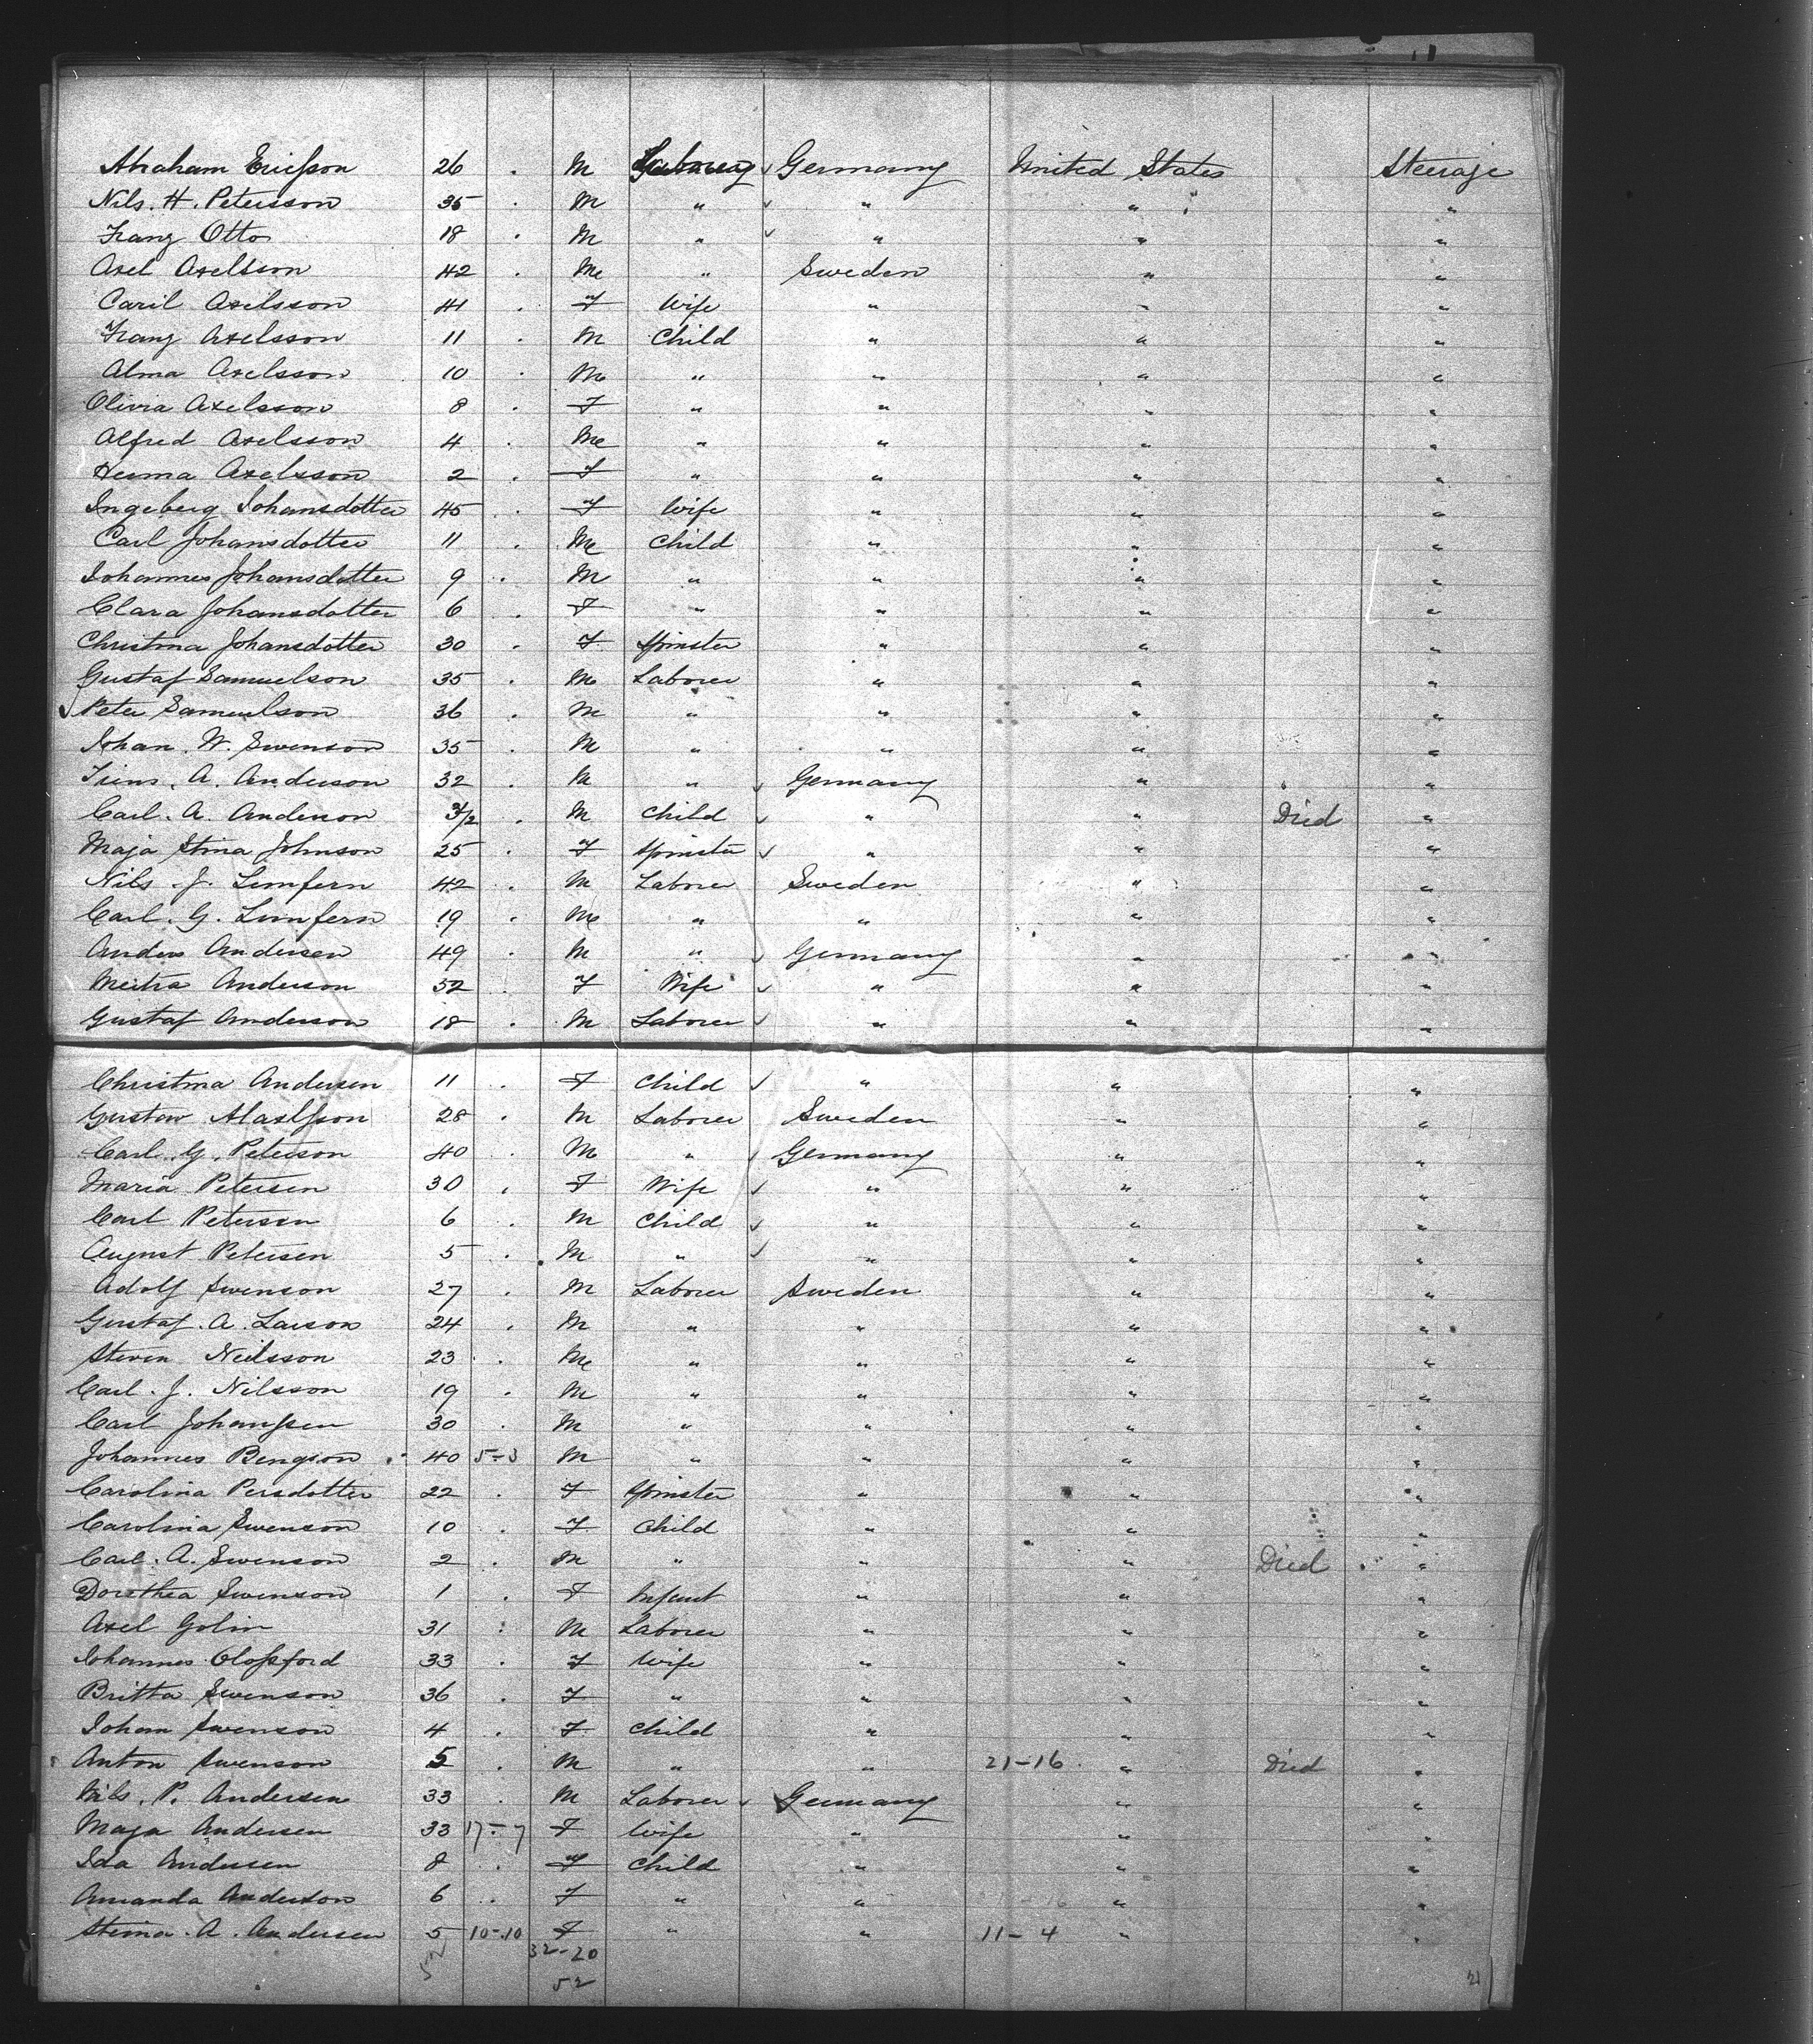 Abraham Ericsson 26 . M Laborer ✓ Germany United States Steerage
Nils. H. Petersson 35 . M " ✓ " " "
Franz Otto 18 . M " ✓ " " "
Axel Axelsson 42 . M " Sweden " "
Caril Axelsson 41 . F Wife " " "
Franz Axelsson 11 . M Child " " "
Alma Axelsson 10 . M " " " "
Olivia Axelsson 8 . F " " " "
Alfred Axelsson 4 . M " " " "
Herma Axelsson 2 . F " " " "
Ingeberg Johansdotter 45 . F Wife " " "
Carl Johansdotter 11 . M Child " " "
Johannes Johansdotter 9 . M " " " "
Clara Johansdotter 6 . F " " " "
Christina Johansdotter 30 . F Spinster " " "
Gustaf Samuelson 35 . M Laborer " " "
✓ Peter Samuelson 36 . M " " " "
Johan. W. Swenson 35 . M " " " "
A. Anderson 32 . M " ✓ Germany " "
Carl. A. Anderson 3/2 . M Child ✓ " " Died "
Maja Stina Johnson 25 . F Spinster ✓ " " "
Nils. J. Limfern 42 . M Laborer Sweden " "
Carl. G. Limfern 19 . M " " " "
Anders Andersen 49 . M " ✓ Germany " "
Anderson 52 . F Wife ✓ " " "
Gustaf Anderson 18 . M Laborer ✓ " " "
Christina Andersen 11 . F Child ✓ " " "
Gustav 28 . M Laborer Sweden " "
Carl. G. Peterson 40 . M " ✓ Germany " "
Maria Petersen 30 . F Wife ✓ " " "
Carl Peterson 6 . M Child ✓ " " "
August Petersen 5 . M " ✓ " " "
Adolf Swenson 27 . M Laborer Sweden " "
Gustaf. A. Larson 24 . M " " " "
Steven Neilsson 23 . M " " " "
Carl. J. Nilsson 19 . M " " " "
Carl Johanssen 30 . M " " " "
Johannes Bengson 40 5-3 M " " " "
Carolina Persdotter 22 . F Spinster " " "
Carolina Swenson 10 . F Child " " "
Carl. A. Swenson 2 . M " " " Died "
Dorothea Swenson 1 . F Infant " " "
Axel Golin 31 . M Laborer " " "
Johannes Olossford 33 . F Wife " " "
Britta Swenson 36 . F " " " "
Johan Swenson 4 . F Child " " "
Anton Swenson 5 . M " " 21-16 " Died "
Nils. P. Andersen 33 . M Laborer ✓ Germany " "
Maja Andersen 33 17-7 F Wife " " "
Ida Andersen 8 . F Child " " "
Amanda Anderson 6 . F " " " "
Steina. A. Andersen 5 10-10 F " " 11-4 " "
52 32-20
52 21